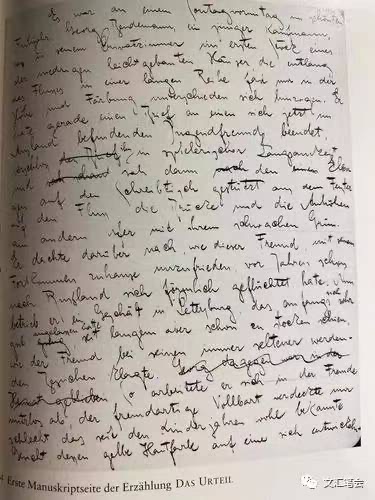 Es war an einem Sonntagvormittag im schönsten
Frühjahr. Georg Bendemann, ein junger Kaufmann,
sass in seinem Privatzimmer im ersten Stock eines
der niedrigen leichtgebauten Häuser die entlang
des Flusses in einer langen Reihe fast nur in der
Höhe und Färbung unterschieden sich hinzogen. Er
hatte gerade einen Brief an einen sich jetzt im
Ausland befindenden Jugendfreund beendet,
verschloss ihn in spielerischer Langsamkeit
und sah dann den Elbogen
auf den Schreibtisch gestützt aus dem Fenster
auf den Fluss, die Brücke und die Anhöhen
am andern Ufer mit ihrem schwachen Grün.
Er dachte darüber nach wie dieser Freund mit seinem
Fortkommen zuhause unzufrieden vor Jahren schon
nach Russland sich förmlich geflüchtet hatte. Nun
betrieb er ein Geschäft in Petersburg, das anfangs sehr
gut angelassen hatte seit langem aber schon zu stocken schien,
wie der Freund bei seinen immer seltener werden-
den Besuchen klagte. Georg dagegen war in der
So arbeitete er sich in der Fremde
nutzlos ab, der fremdartige Vollbart verdeckte nur
schlecht das seit den Kinderjahren wohl bekannte
Gesicht dessen gelbe Hautfarbe auf eine sich entwickelnde
4 Erste Manuskriptseite der Erzählung DAS URTEIL
文汇笔会